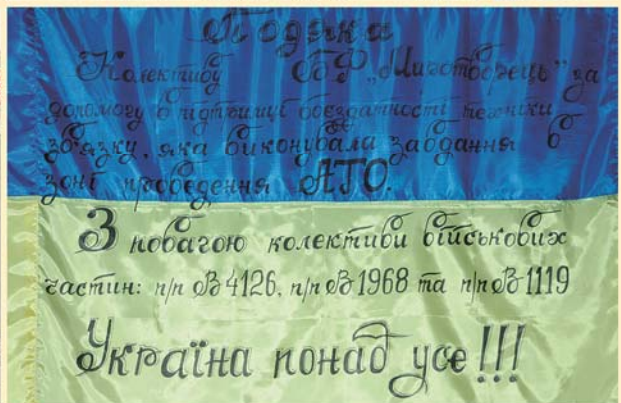 Подяка
Колективу БФ „Миротворець" за
допомогу в підтримці боєздатності техніки
зв'язку, яка виконувала завдання в
зоні проведення АТО.
З повагою колективи військових
частин: п/п В 4126, п/п В 1968 та п/п В-1119
Україна понад усе!!!